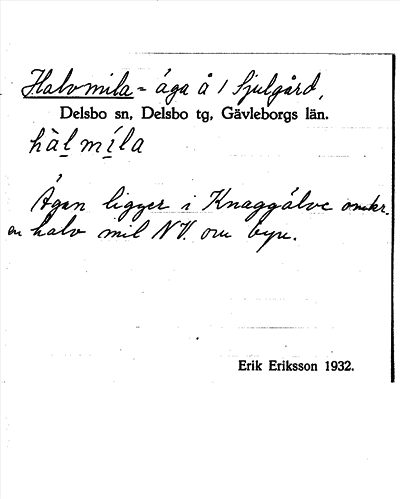 Halvmila = äga å 1 Sjulgård,
Delsbo sn, Delsbo tg, Gävleborgs län.
hàl míla
Ägan ligger i Knaggälve omkr.
en halv mil NV. om byn.
Erik Eriksson 1932.